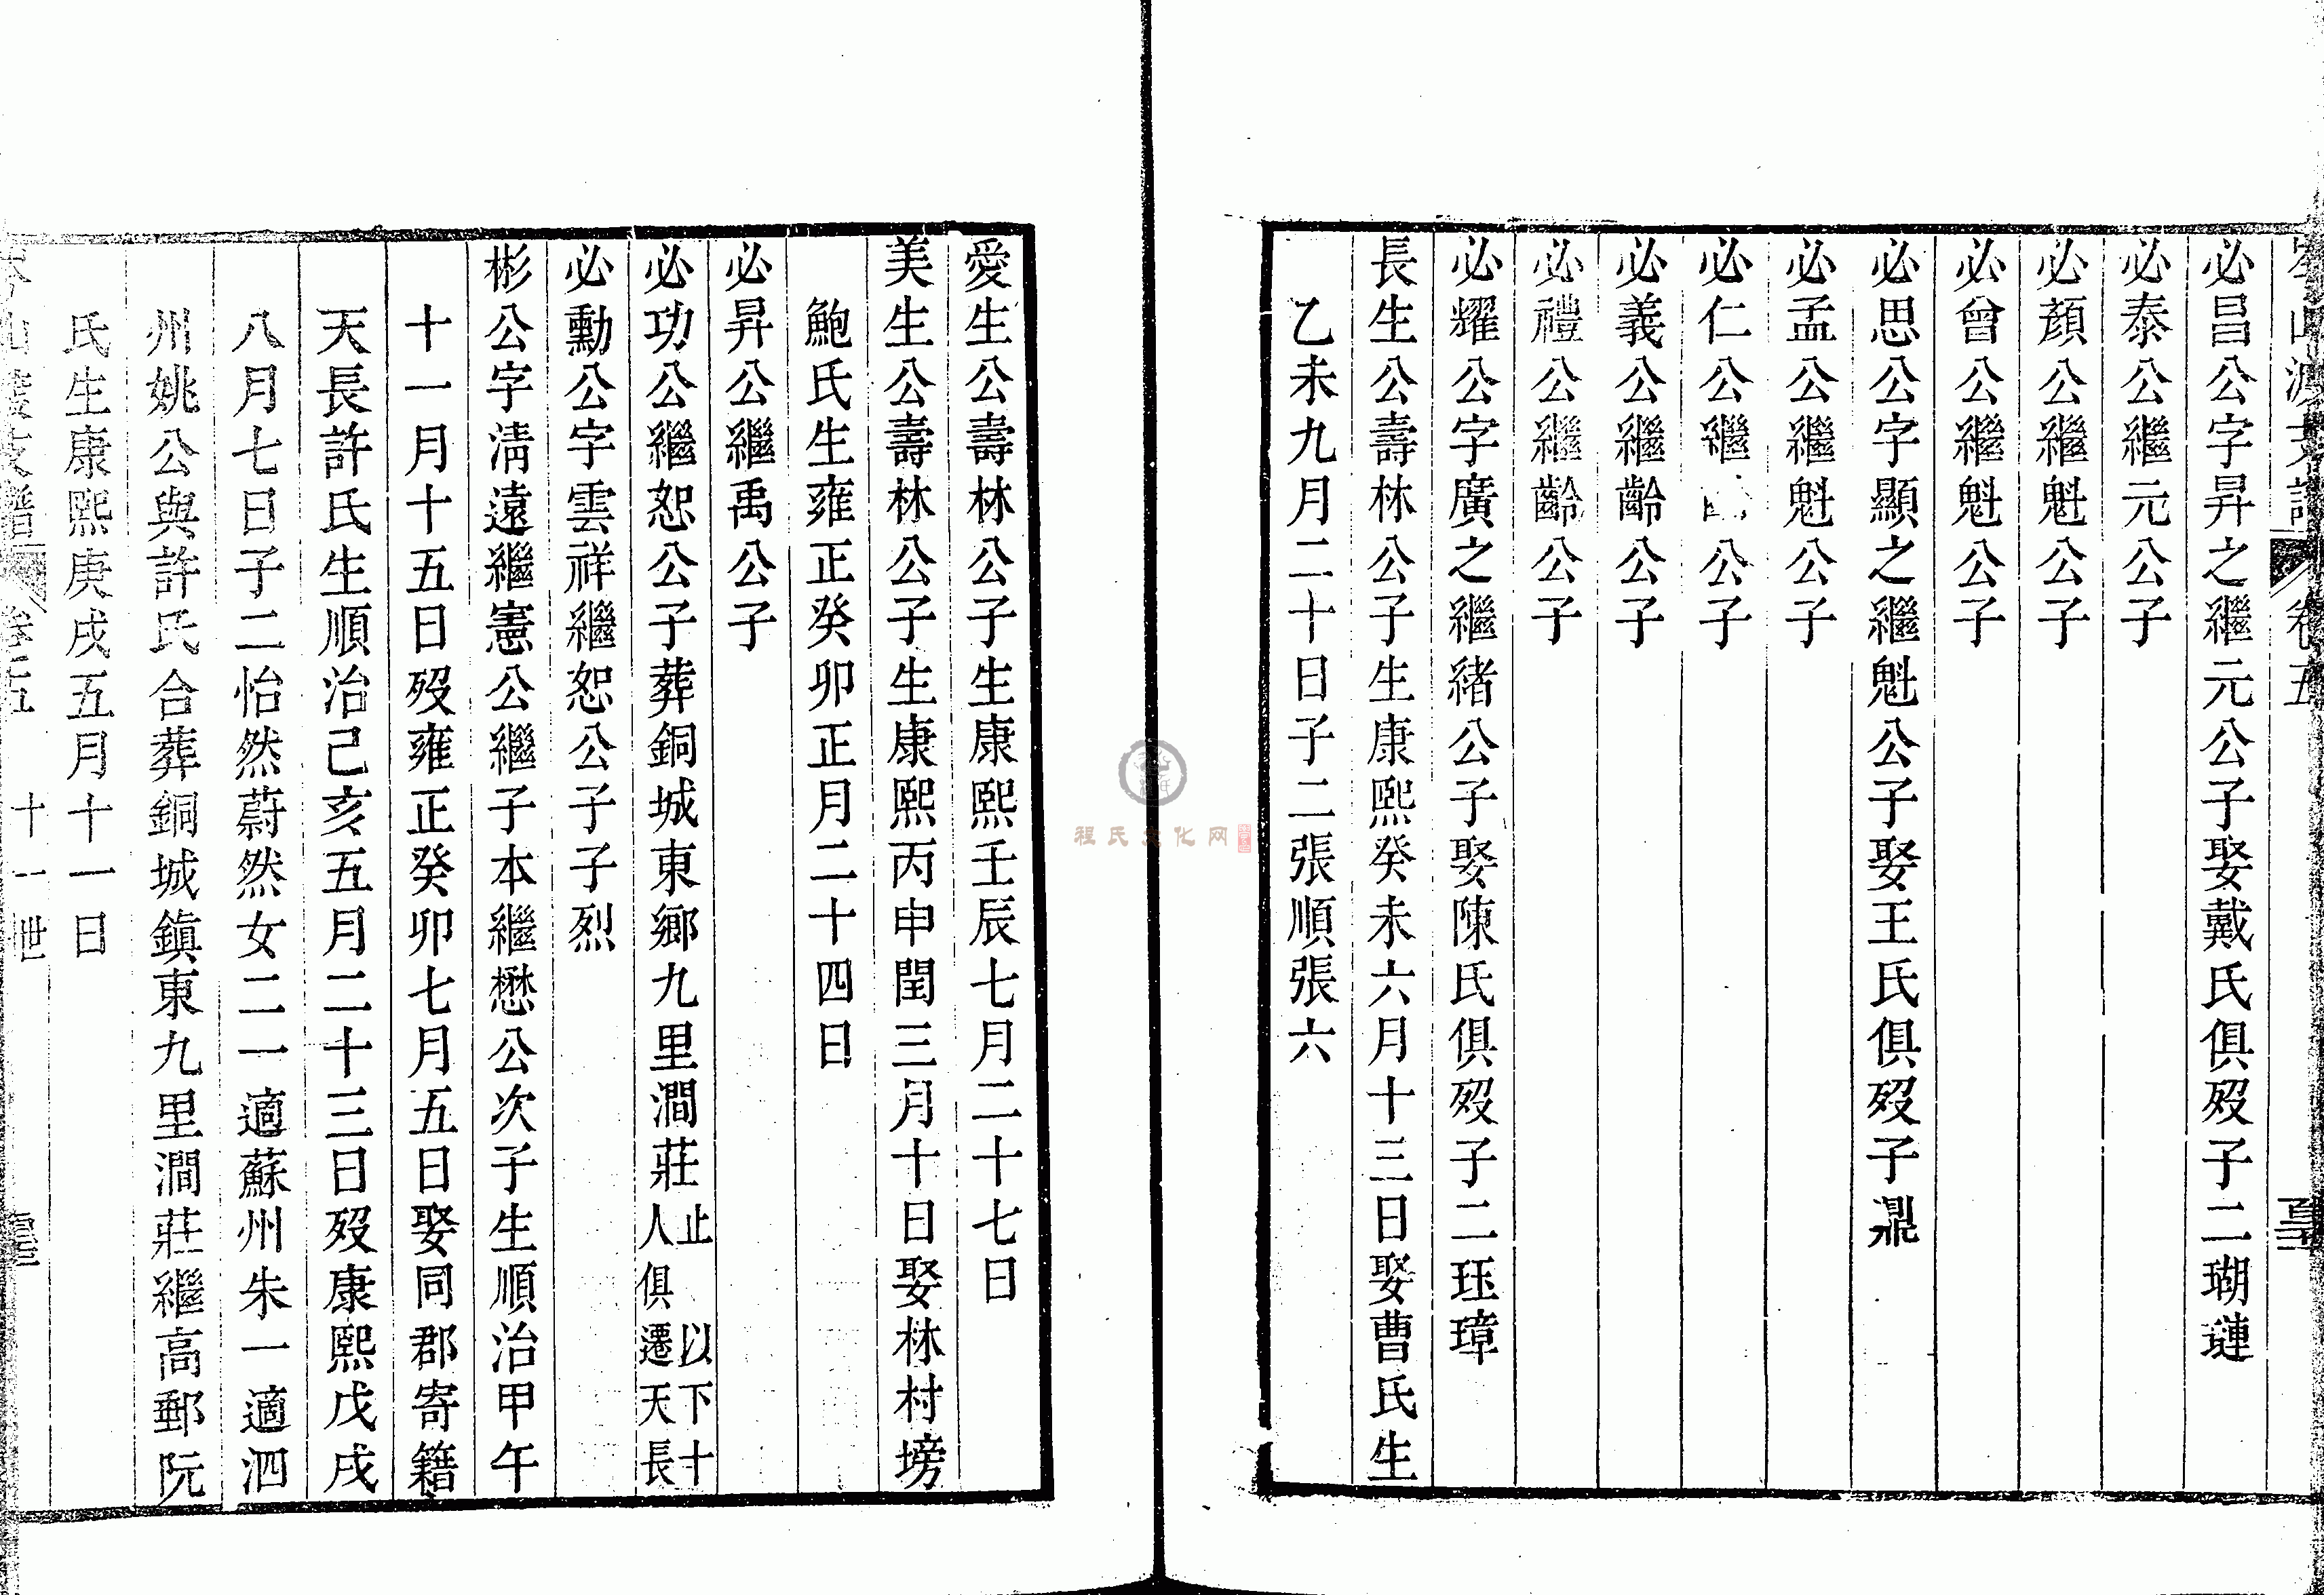 必昌公字昇之繼元公子娶戴氏俱歿子二瑚璉
必泰公繼元公子
必顏公繼魁公子
必曾公繼魁公子
必思公字顯之繼魁公子娶王氏俱歿子鼎
必孟公繼魁公子
必仁公繼公子
必義公繼齡公子
必禮公繼齡公子
必耀公字廣之繼緒公子娶陳氏俱歿子二珏璋
長生公壽林公子生康熙癸未六月十三日娶曹氏生
乙未九月二十日子二張順張六
愛生公壽林公子生康熙壬辰七月二十七日
美生公壽林公子生康熙丙申閏三月十日娶林村塝
鮑氏生雍正癸卯正月二十四日
必昇公繼禹公子
必功公繼恕公子葬銅城東鄉九里澗莊止以下十
人俱遷天長
必勳公字雲祥繼恕公子子烈
彬公字淸遠繼憲公繼子本繼懋公次子生順治甲午
十一月十五日歿雍正癸卯七月五日娶同郡寄籍
天長許氏生順治己亥五月二十三日歿康熙戊戌
八月七日子二怡然蔚然女二一適蘇州朱一適泗
州姚公與許氏合葬銅城鎮東九里澗莊繼高郵阮
氏生康熙庚戌五月十一日
卷五 十一世
程氏文化网